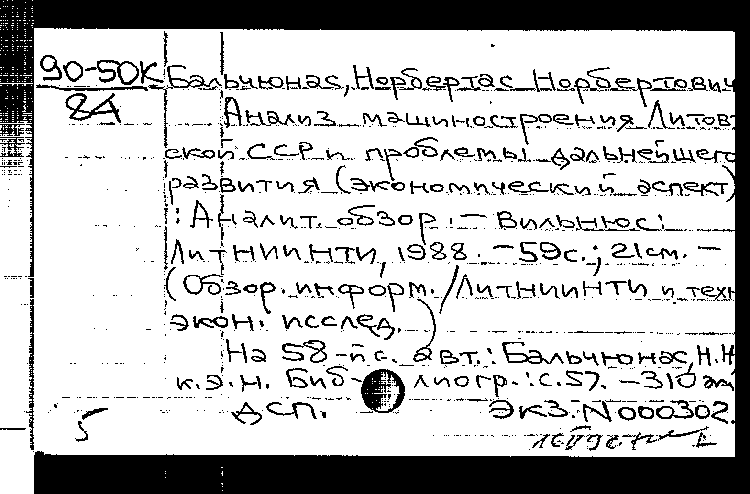 90-50К Бальчюнас, Норбертас Норбертович
84 Анализ машиностроения Литов
ской ССР и проблемы дальнейшего
развития (экономический аспект)
: Аналит. обзор. — Вильнюс:
ЛитНИИНТИ, 1988. — 59с.; 21см. —
(Обзор. информ. / ЛитНИИНТИ и техн
экон. исслед.)
На 58-й с. авт.: Бальчюнас, Н.Н
к.э.н. Библиогр.: с.57. — 310 эк
ДСП. Экз. N000302.
5